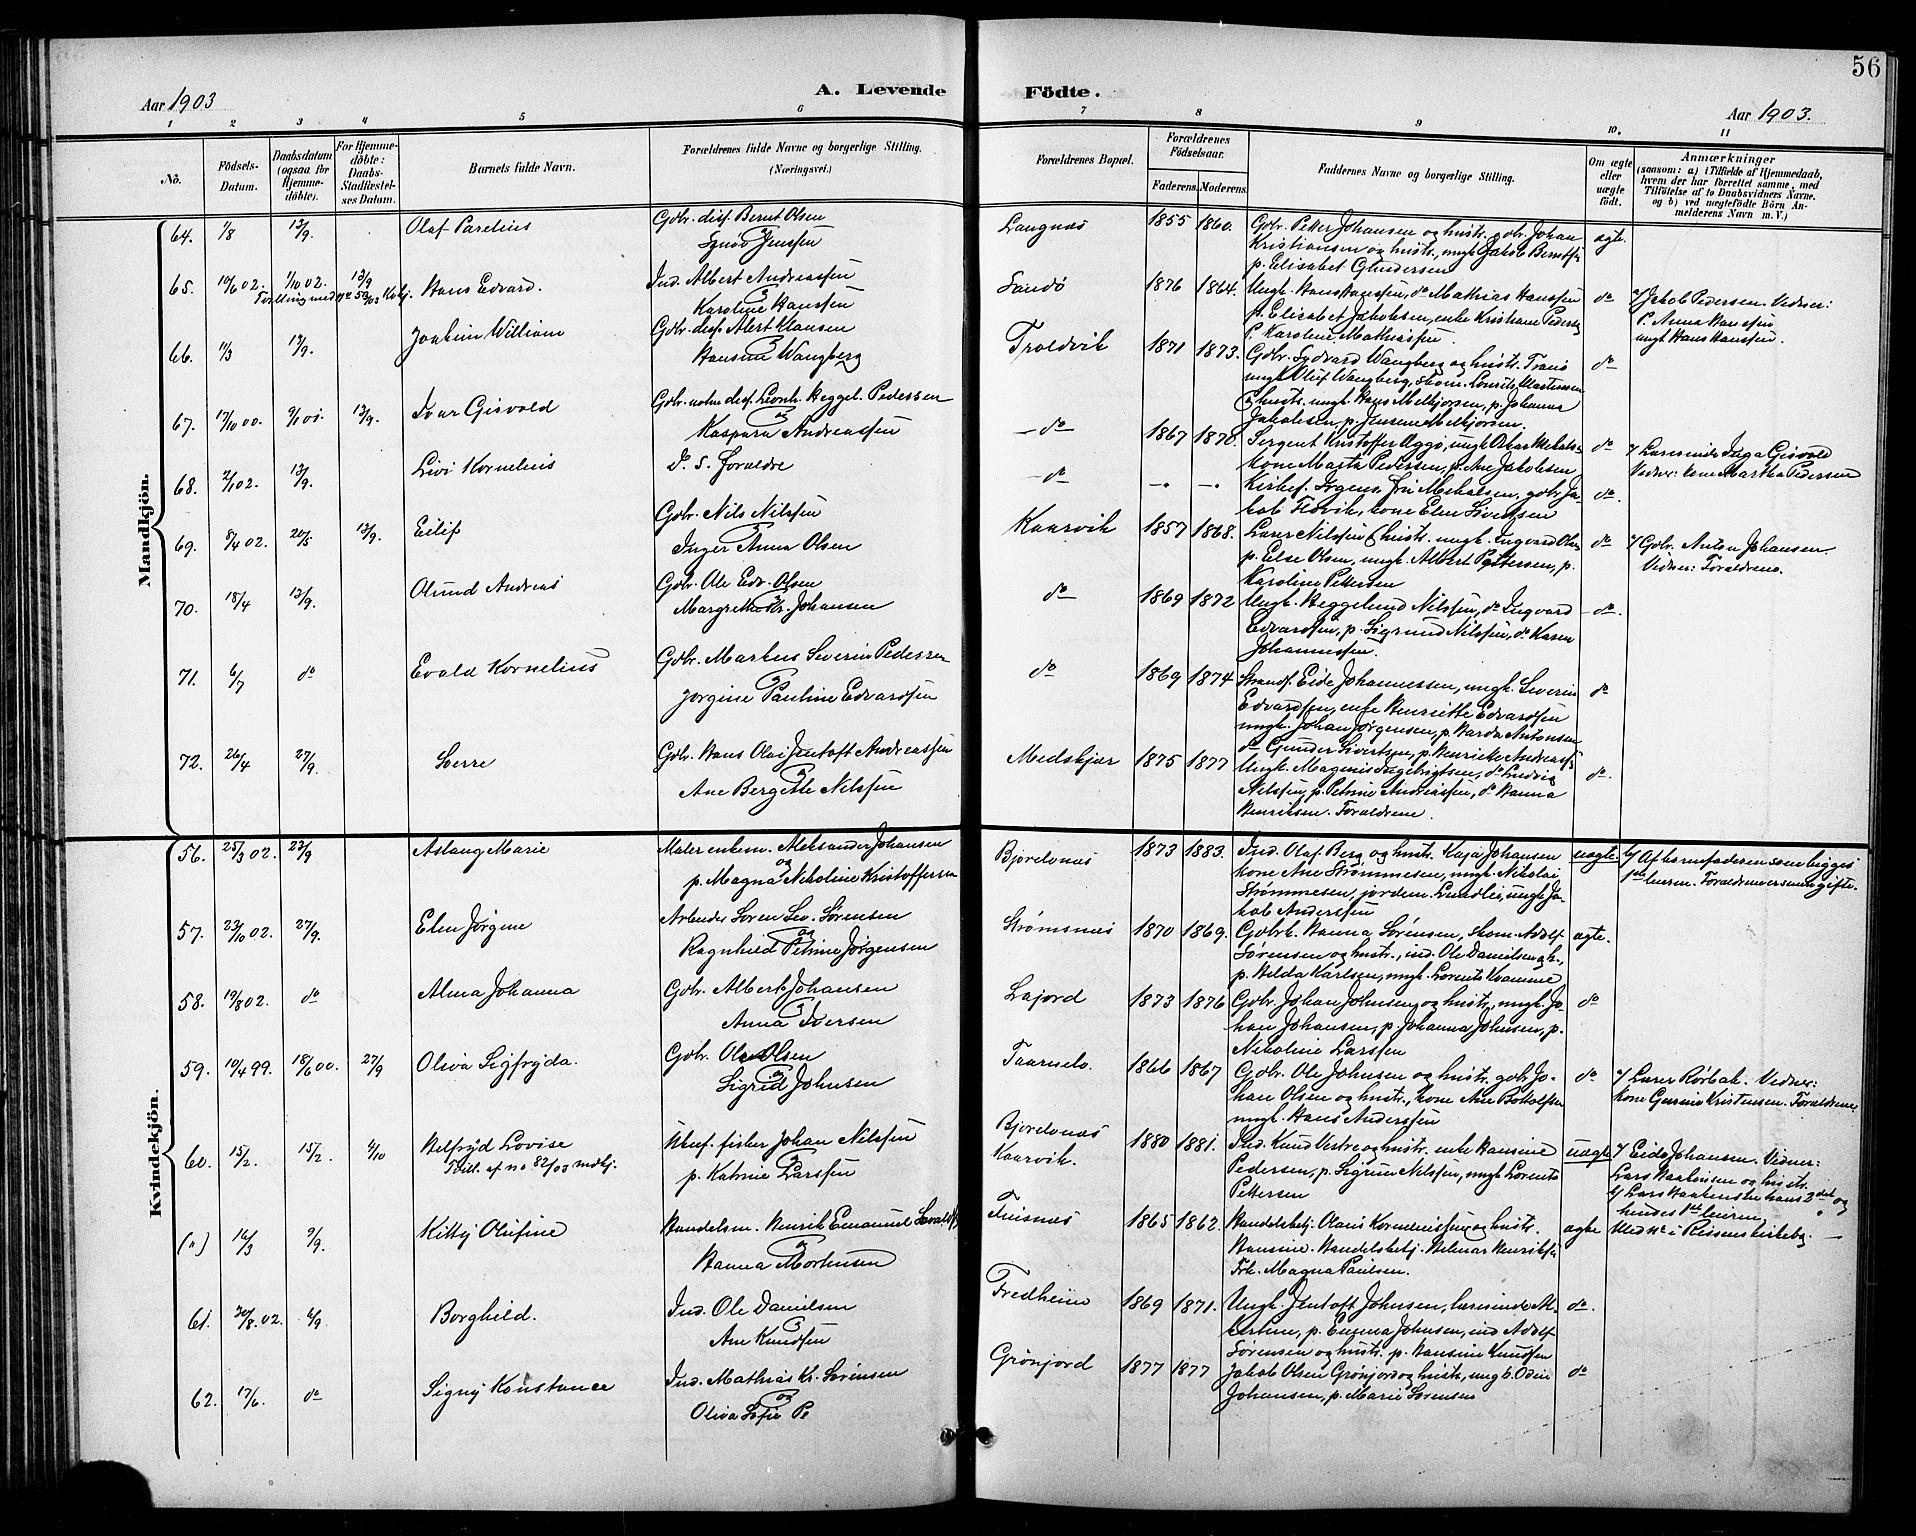 56
Aar 1903
A. Levende
Födte.
Aar 1903.
1 2 3 4 5 6 7 8 9 10. 11
Nô.
Födsels-
Datum.
Daabsdatum
(ogsaa for
Hjemme-
döbte).
For Hjemme-
döbte:
Daabs-
Stadfæstel-
ses Datum.
Barnets fulde Navn.
Forældrenes fulde Navne og borgerlige Stilling.
(Næringsvei.)
Forældrenes Bopæl.
Forældrenes
Födselsaar.
Faderens. Moderens.
Faddernes Navne og borgerlige Stilling.
Om ægte
eller
uægte
født.
Anmærkninger
(saasom: a) i Tilfælde af Hjemmedaab,
hvem der har forrettet samme, med
Tilföielse af to Daabsvidners Navne,
og b) ved uægtefödte Börn An-
melderens Navn m. V.)
Mandkjön.
64. 1/8 13/9. Olaf Parelius
Gdbr. disp. Bernt Olsen
Synøv Jenssen
Langnæs 1855 1860.
Gdbr. Petter Johansen og hustr. gdbr. Johan
Kristiansen og hustr., ungk. Jakob Berntsen
p. Elisabet
ægte.
65. 10/6 02. 1/10 02. 13/9 Hans Edvard.
Ind. Albert Andreassen
Karoline Hanssen
Sandø 1876 1864.
Ungk. Hans Hanssen, do Mathias Hanssen
p. Elisabet Jakobsen, enke Kristiane Peders.
p. Karoline Mathiassen.
do
a/ Jakob Pedersen. Vidner:
p. Anna Hanssen
ungk. Hans Hanssen.
66. 1/3 13/9. Joakim William
Gdbr. disp. Alert Klausen
Hansine Wangberg
Troldvik 1871 1873.
Gdbr. Sydvard Wangberg og hustr.
ungk. Oluf Wangberg, skom. Laurits Martinsen
& hustr. ungk. Hans Melkjorsen, p. Johanna
Jakobsen, p. Jensine Melkjorsen.
do
67. 17/10 00. 9/1 01. 13/9. Ivar Gisvold
Pedersen
Kaspara Andreassen
- do - 1867 1870.
Sergent Kristoffer Aggø, ungk. Oskar
kone Marta Pedersen, p. Ane Jakobsen
do
a/ Lærerinde Inga Gisvold
Vidner: kone Martha Pedersen
68. 2/1 02. 13/9. Livi Kornelius
D. s. Foraldre
- do -
Kirkes. Jrgens. Fri Mikalsen, gdbr. Ja-
kob Flovik, kone Elen Sivertsen
do.
69. 8/4 02. 20/5 13/9. Eilif
Gdbr. Nils Nilssen
Inger Anna Olsen
Kaarvik 1857 1868.
Lærer Nilssen & hustr. ungk. Ingvard Olsen
p. Else Olsen, ungk. Albert Pettersen, p.
Karoline Pettersen
do
a/ Gdbr. Anton Johansen.
Vidner: Foraldrene.
70. 18/4 13/9. Olund Andreas
Gdbr. Ole Edv. Olsen
Margrethe Kr. Johansen
do 1869 1872
Ungk. Heggelund Nilssen, do Ingvard
Edvardsen, p. Sigrund Nilssen, do Karen
Johannessen.
- do.
71. 6/7 do Evald Kornelius
Gdbr. Markus Severin Pedersen
Jorgine Pauline Edvardsen
do 1869 1874
Strands. Eide Johannessen, ungk. Severin
Edvardsen, enke Henriette Edvardsen
ungk. Johan Jørgensen, p. Harda Antonsen
do Gunder Sivertsen, p. Henrikke Andreass.
do
72. 26/4 27/9. Serre
Gdbr. Hans Olai Jentoft Andreassen
Ane Bergette Nilssen
Medskjær 1875 1877
Ungk. Magnus Ingebrigtsen, do Ludvig
Nilssen, p. Petrine Andreassen, do Hanna
Henriksen. Foraldrene.
do.
Kvindekjön.
56. 25/3 02. 23/9 Aslaug Marie
Maler enkem. Aleksander Johansen
og
p. Magna Nikoline Kristoffersen
Bjorelvnæs 1873 1883.
Ind. Olaf Berg og hustr. Kaja Johansen
kone Ane Strømmesen, ungk. Nikolai
Strømmesen, jordem. Lundlei, ungk. Ja-
kob Anderssen
uægte.
b/ Af barnefaderen som begges
1ste leierm. Foraldrene ere nu gifte.
57. 23/10 02. 27/9. Elen Jørgine
Arbeider Soren Sev. Sørensen
og
Ragnhild Petrine Jørgensen
Strømsnæs 1870 1869.
Gdbrk. Hanna Sørensen, skom. Adolf
Sørensen og hustr., ind. Ole Danielsen og h.,
p. Hilda Karlsen, ungk. Lorents Kvamme
ægte.
58. 19/8 02. do Alma Johanna
Gdbr. Albert Johansen
Anna Iversen
Lajord 1873 1876
Gdbr. Johan Johnsen og hustr., ungk. Jo-
han Johansen, p. Johanna Johnsen, p.
Nikoline Larssen
do
59. 10/4 99. 18/6 00. 27/9 Oliva Sigfryda.
Gdbr. Ole Olsen
Sigrid Johnsen
Taarnelv. 1866 1867
Gdbr. Ole Johnsen og hustr. gdbr. Jo-
han Olsen og hustr., kone Ane Bottolfsen
ungk. Hans Anderssen
do
a/ Lærer Rörbak. Vidner:
kone Gurine Kristensen. Foraldrene.
60. 15/2. 15/2. 4/10 Helfryd Lovise
Tvill. af no 82/03 mdkj.
Ukonf. fisker Johan Nilssen
p. Katrine Larssen
Bjorelvnæs
Kaarvik. 1880 1881.
Ind. Knud Vestre og hustr. enke Hansine
Pedersen, p. Sigrun Nilssen, ungk. Lorents
Pettersen
uægte
a/ Eide Johansen. Vidner:
Lars Haakensen og hustr.
b/ Lars Haakensen hans 2det og
hendes 1ste leierm.
(") 16/3 9/9. Kitty Olufine
Handelsm. Henrik Emanuel
og
Hanna Mortensen
Finsnæs 1865 1862.
Handelsbetj. Olaus Korneliussen og hustr.
Hansine. Handelsbetj. Helmar Henriksen
Frk. Magna Paulsen.
ægte
61. 30/8. 02. 6/9 Borghild.
Ind. Ole Danielsen
Ane Knudsen
Fredheim 1869 1871.
Ungk. Jentoft Johnsen, lærerinde M.
p. Emma Johnsen, ind Adolf
Sørensen og hustr. p. Hansine Knudsen
do.
62. 17/6. do Signy Konstance
Ind. Mathias Kr. Sørensen
og
Oliva Sofie Pe
Grönjord 1877 1877
Jakob Olsen Grönjord og hustr., ungk. Odin
Johansen, p. Marie Sørensen
do